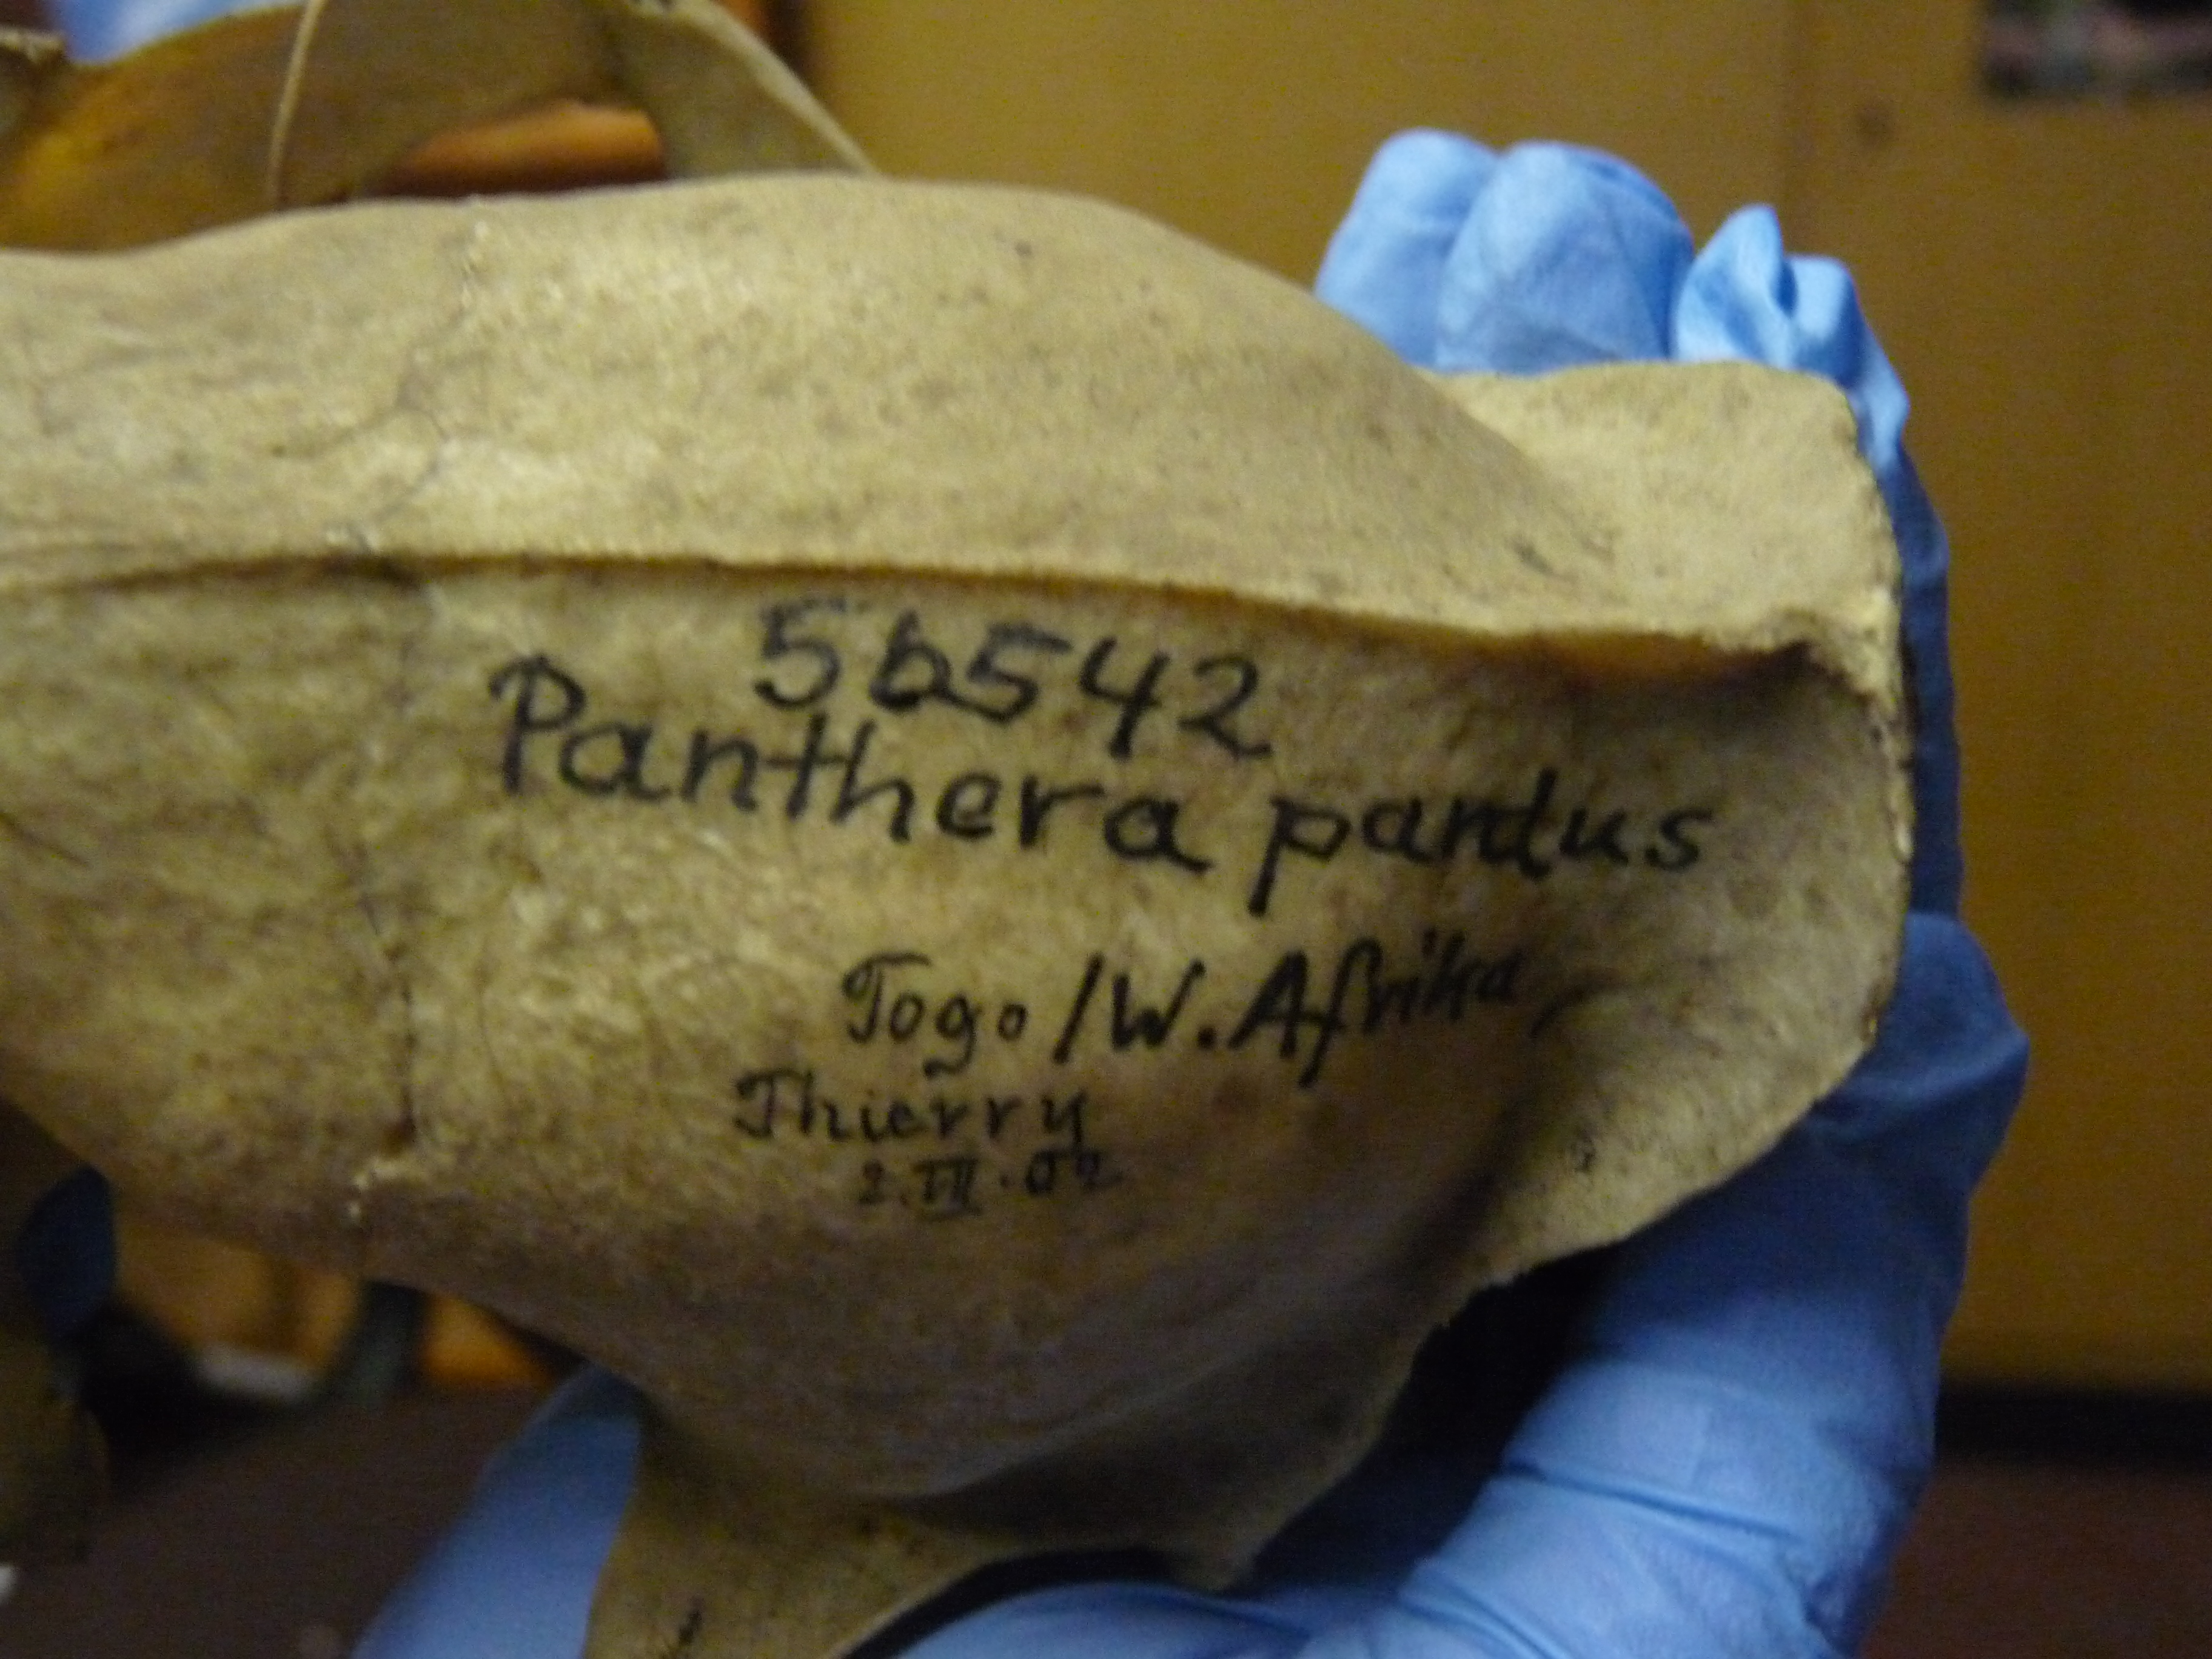 56542
Panthera pardus
Togo/W. Afrika
Thierry
2.VII.02